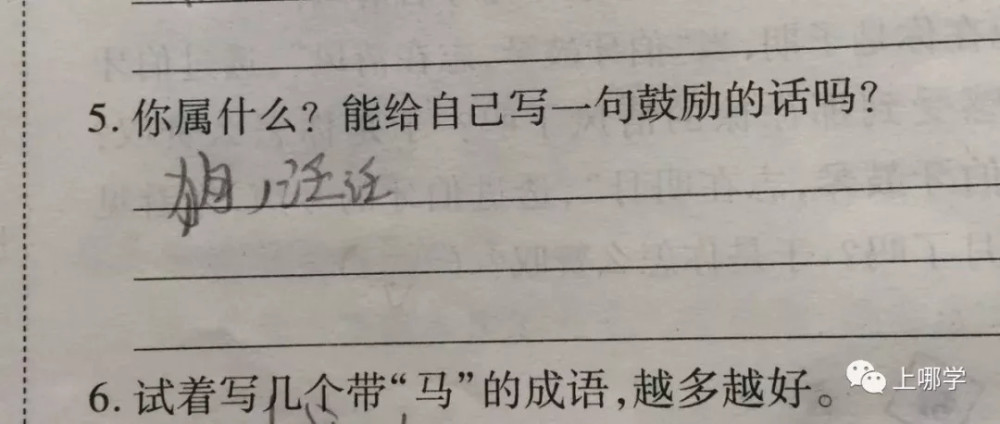 5. 你属什么？能给自己写一句鼓励的话吗？
6. 试着写几个带“马”的成语，越多越好。
上哪学